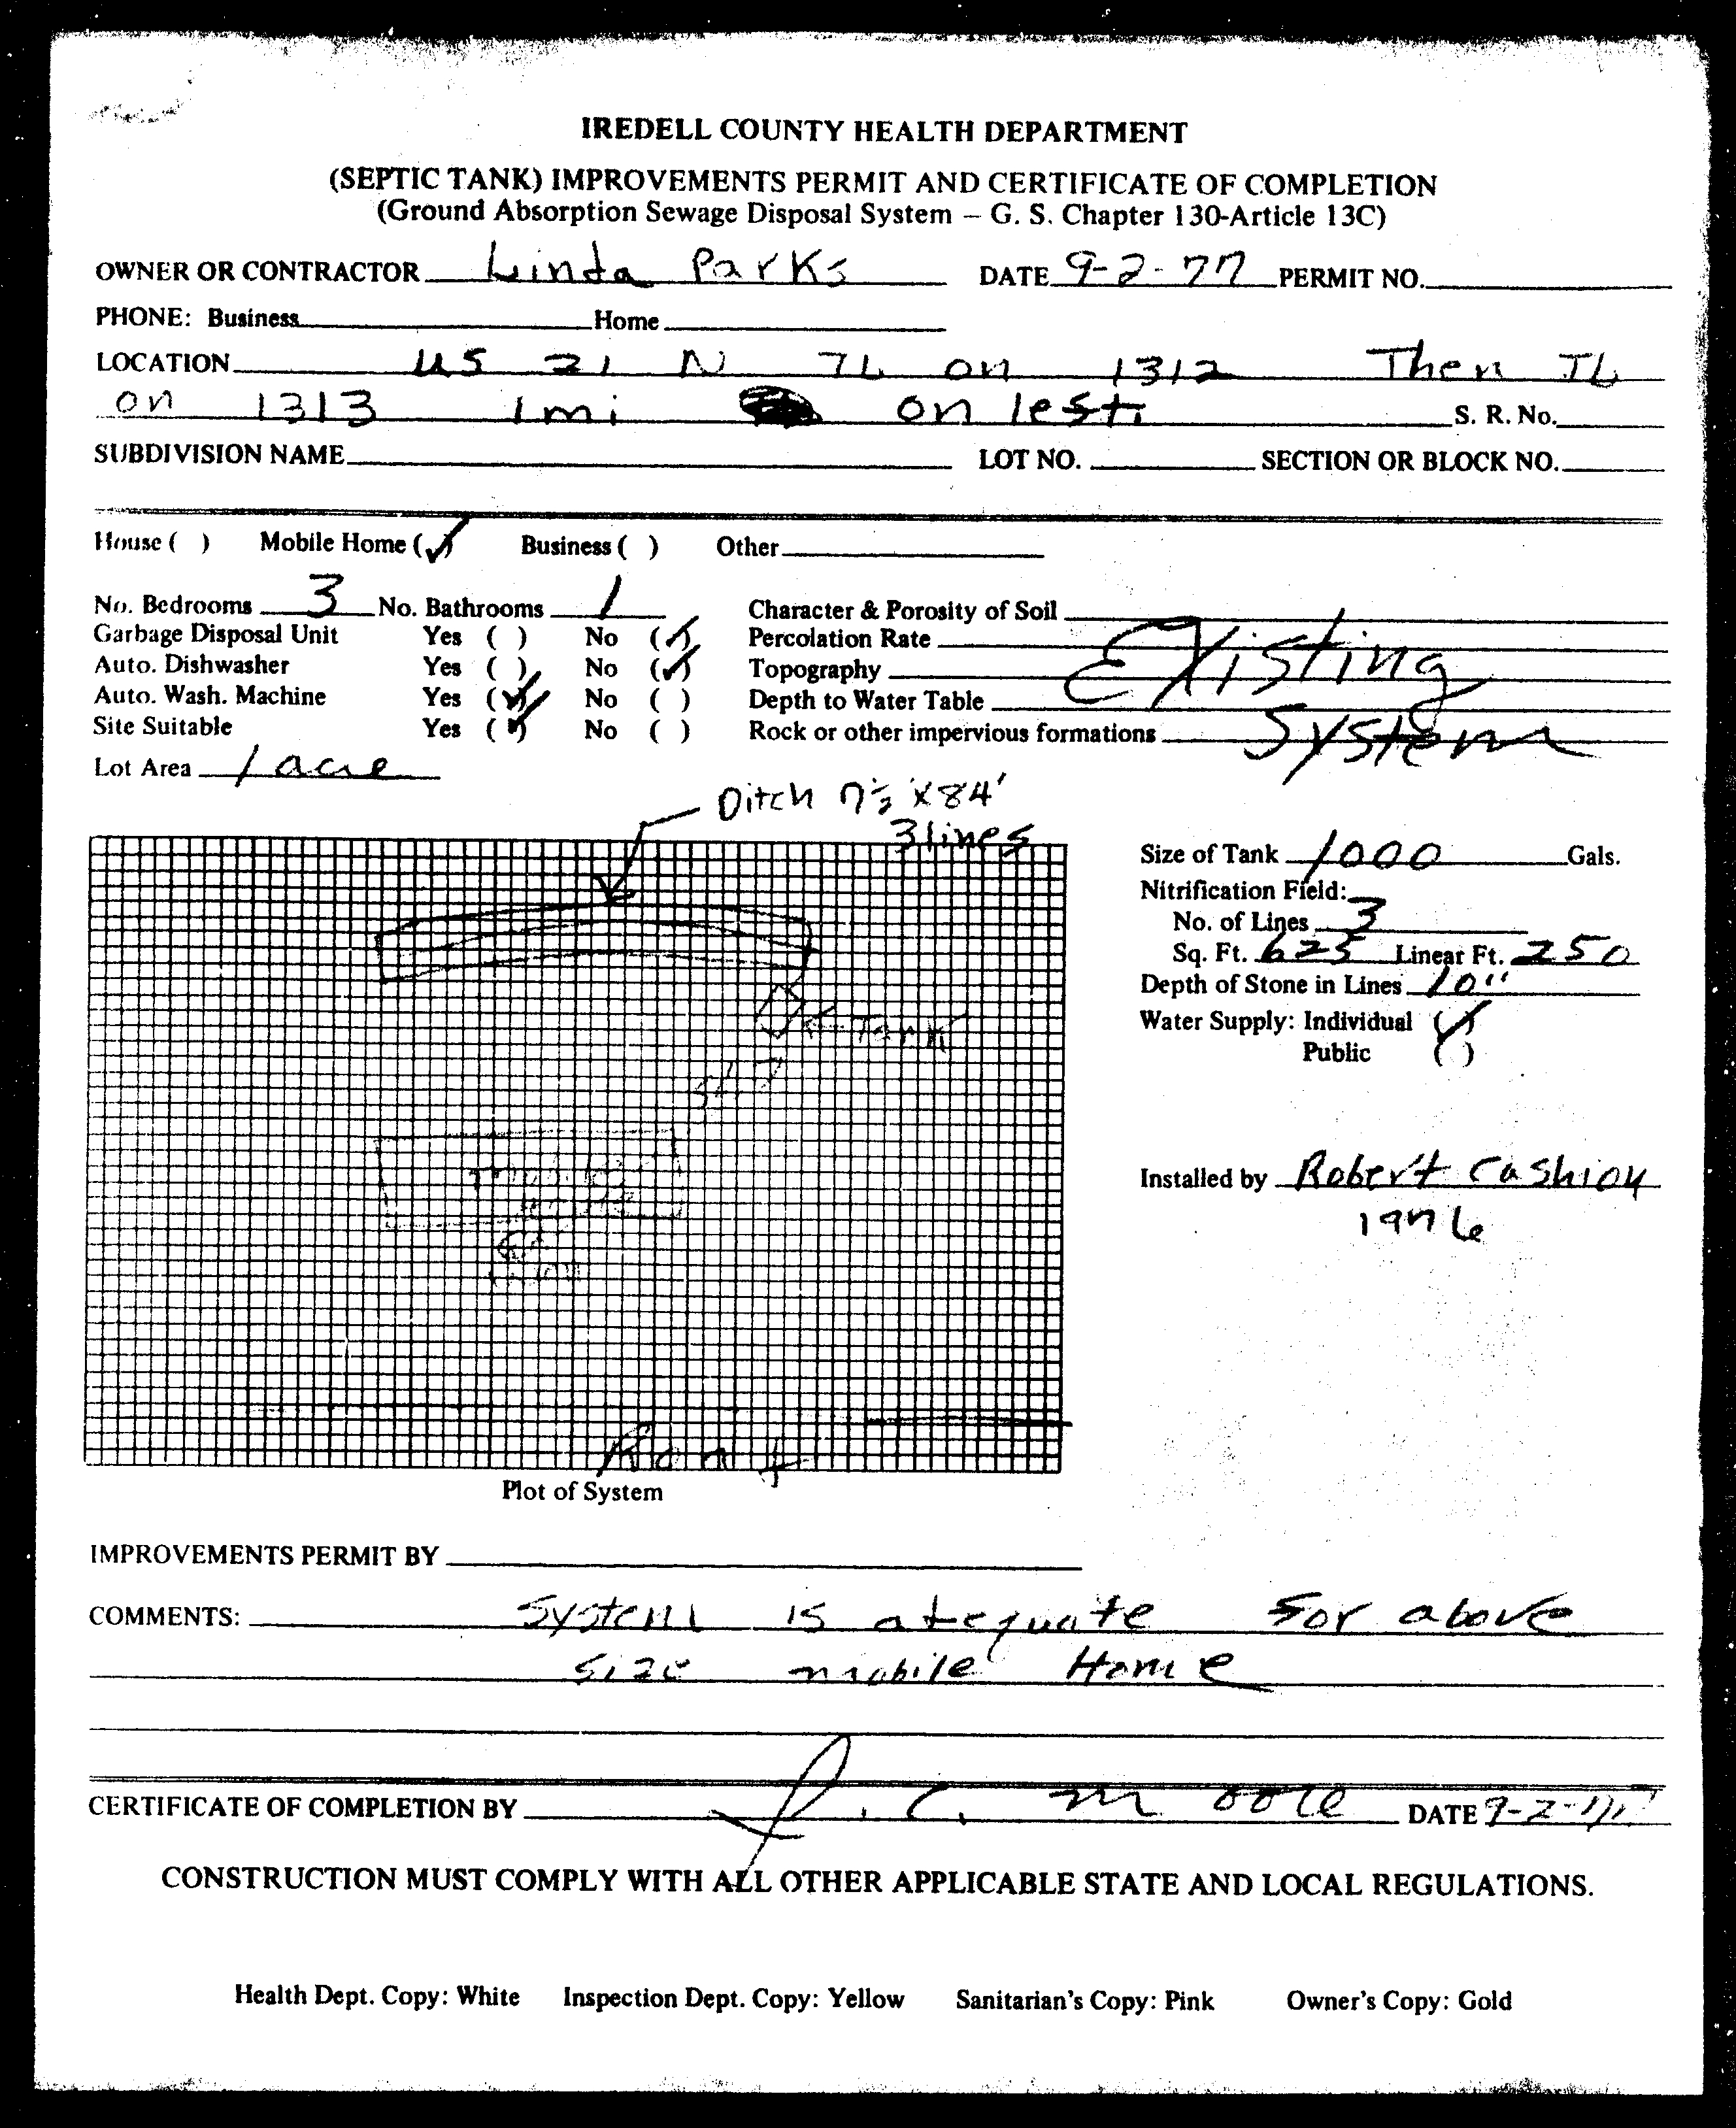 IREDELL COUNTY HEALTH DEPARTMENT
(SEPTIC TANK) IMPROVEMENTS PERMIT AND CERTIFICATE OF COMPLETION
(Ground Absorption Sewage Disposal System — G. S. Chapter 130-Article 13C)
OWNER OR CONTRACTOR Linda Parks DATE 9-2-77 PERMIT NO.
PHONE: Business Home
LOCATION US 21 N TL on 1312 Then TL
on 1313 1 mi on left S. R. No.
SUBDIVISION NAME LOT NO. SECTION OR BLOCK NO.
House ( ) Mobile Home (✓) Business ( ) Other
No. Bedrooms 3 No. Bathrooms 1 Character & Porosity of Soil
Garbage Disposal Unit Yes ( ) No (✓) Percolation Rate
Auto. Dishwasher Yes ( ) No (✓) Topography Existing
Auto. Wash. Machine Yes (✓) No ( ) Depth to Water Table
Site Suitable Yes (✓) No ( ) Rock or other impervious formations System
Lot Area 1 acre
Ditch 7½ X 84'
3 lines
Size of Tank 1000 Gals.
Nitrification Field:
No. of Lines 3
Sq. Ft. 625 Linear Ft. 250
Depth of Stone in Lines 10"
Water Supply: Individual (✓)
Public ( )
Tank
Installed by Robert Cashion
1976
Front
Plot of System
IMPROVEMENTS PERMIT BY
COMMENTS: System is adequate for above
size mobile Home
CERTIFICATE OF COMPLETION BY J. C. Moore DATE 9-2-77
CONSTRUCTION MUST COMPLY WITH ALL OTHER APPLICABLE STATE AND LOCAL REGULATIONS.
Health Dept. Copy: White Inspection Dept. Copy: Yellow Sanitarian's Copy: Pink Owner's Copy: Gold